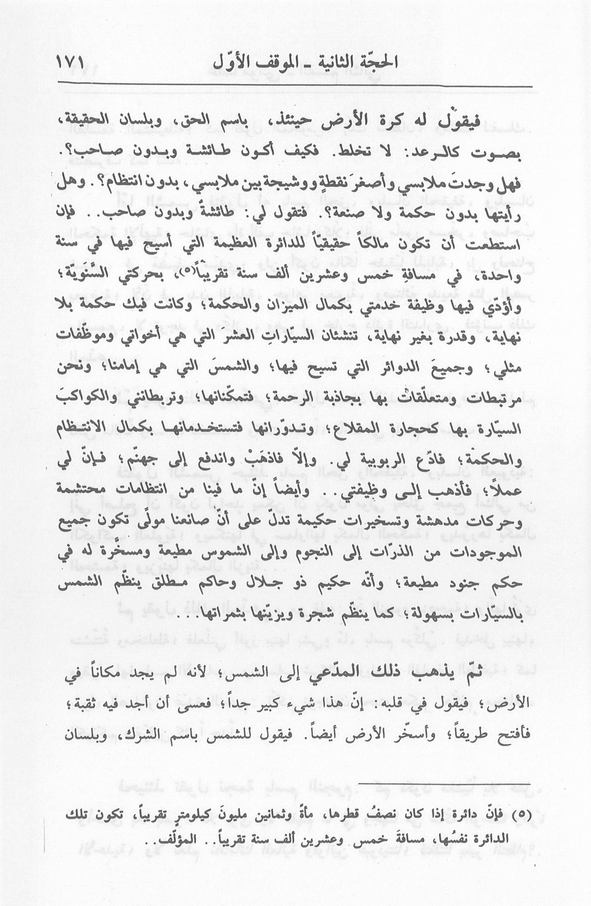 الحجّة الثانية ـ الموقف الأوّل ١٧١
فيقول له كرة الأرض حينئذ، باسم الحق، وبلسان الحقيقة،
بصوت كالرعد: لا تخلط. فكيف أكون طائشة وبدون صاحب؟.
فهل وجدتَ ملابسي وأصغرَ نقطةٍ ووشيجة بين ملابسي، بدون انتظام؟. وهل
رأيتها بدون حكمة ولا صنعة؟. فتقول لي: طائشةٌ وبدون صاحب.. فإن
استطعت أن تكون مالكاً حقيقيّاً للدائرة العظيمة التي أسيح فيها في سنة
واحدة، في مسافةِ خمس وعشرين ألف سنة تقريباً(٥)، بحركتي السَّنَويّة؛
وأؤدّي فيها وظيفة خدمتي بكمال الميزان والحكمة؛ وكانت فيك حكمة بلا
نهاية، وقدرة بغير نهاية، تنشئان السيّاراتِ العشرَ التي هي أخواتي وموظّفات
مثلي؛ وجميعَ الدوائر التي تسيح فيها؛ والشمسَ التي هي إمامنا؛ ونحن
مرتبطات ومتعلّقاتٌ بها بجاذبة الرحمة؛ فتمكّنانها؛ وتربطانني والكواكبَ
السيّارة بها كحجارة المقلاع؛ وتدوّرانها فتستخدمانها بكمال الانتظام
والحكمة؛ فادّع الربوبية لي. وإلّا فاذهَبْ واندفع إلى جهنّم؛ فإن لي
عملاً؛ فأذهب إلى وظيفتي.. وأيضاً إنّ ما فينا من انتظامات محتشمة
وحركات مدهشة وتسخيرات حكيمة تدلّ على أنّ صانعنا مولًى تكون جميع
الموجودات من الذرّات إلى النجوم وإلى الشموس مطيعة ومسخَّرة له في
حكم جنود مطيعة؛ وأنّه حكيم ذو جلال وحاكم مطلق ينظّم الشمس
بالسيّارات بسهولة؛ كما ينظّم شجرة ويزيّنها بثمراتها...
ثمّ يذهب ذلك المدّعي إلى الشمس؛ لأنه لم يجد مكاناً في
الأرض؛ فيقول في قلبه: إنّ هذا شيء كبير جداً؛ فعسى أن أجد فيه ثقبة؛
فأفتح طريقاً؛ وأسخّر الأرض أيضاً. فيقول للشمس باسم الشرك، وبلسان
(٥) فإنّ دائرة إذا كان نصفُ قطرها، مأةً وثمانين مليونَ كيلومترٍ تقريباً، تكون تلك
الدائرة نفسُها، مسافةَ خمس وعشرين ألف سنة تقريباً.. المؤلّف..